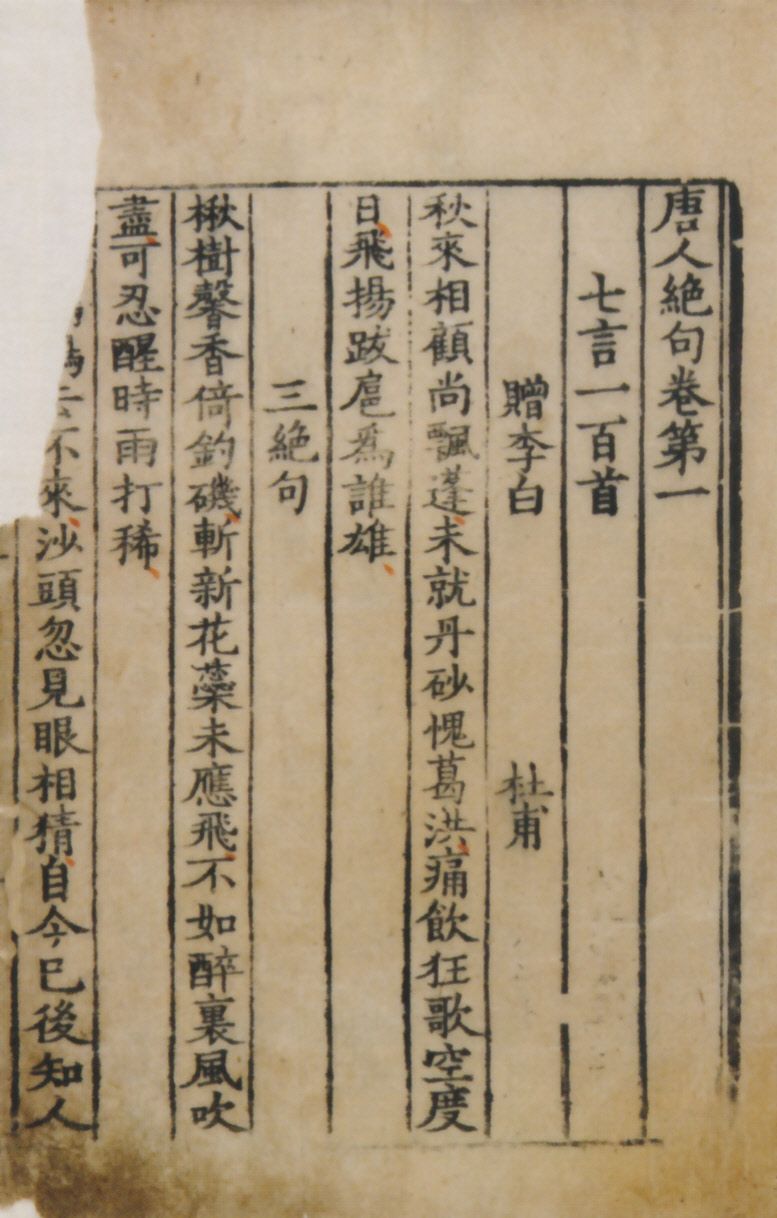 唐人絶句卷第一
七言一百首
贈李白 杜甫
秋來相顧尚飄蓬未就丹砂愧葛洪痛飲狂歌空度
日飛揚跋扈爲誰雄
三絶句
楸樹馨香倚釣磯斬新花蘂未應飛不如醉裏風吹
盡可忍醒時雨打稀
不來沙頭忽見眼相猜自今已後知人